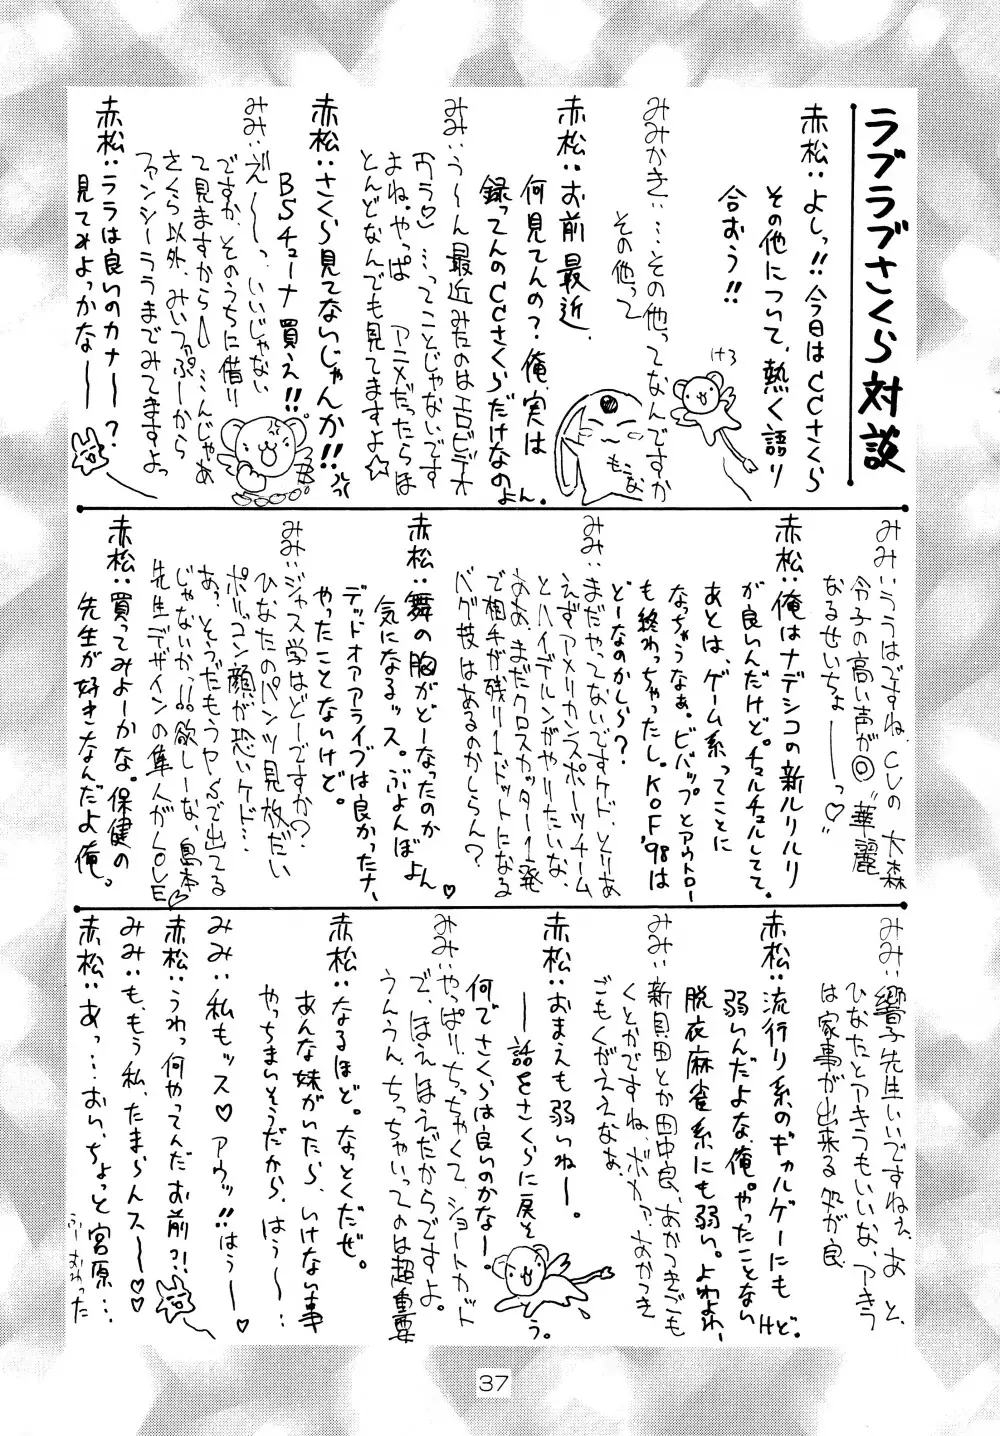 ラブラブさくら対談
赤松：よしっ!!今日はCCさくら
その他について、熱く語り
合おう!!
けろ
みみかき：…その他ってなんですか
その他って
もうな
赤松：お前最近
何見てんの？俺、実は
録ってんのCCさくらだけなの
よん。
みみ：う〜ん最近みたのはエロビデオ
おう♡…ってことじゃないです
よね。やっぱ アニメだったらほ
とんどなんでも見てますよ☆
赤松：さくら見てないじゃんか!!
BSチューナ買え!!
みみ：え〜っ、いいじゃない
ですか、そのうちに借り
て見ますからん…んじゃあ
さくら以外、みいつぷーから
ファンシーララまでみてますよっ
赤松：ララは良いのカナー？
見てみよっかなー
みみ：ララはですね、CVの大森
令子の高い声が◎"華麗
なるせいちょーっ♡"
赤松：俺はナデシコの新ルリルリ
が良いんだけど。チュルチュルしてて。
あとは、ゲーム系ってことに
なっちゃうなぁ。ビバップとアウトロー
も終わっちゃったし。KOF'98は
どーなのかしら？
みみ：まだやってないですケド、とりあ
えずアメリカンスポーツチーム
とハイデルンがやりたいな、
ああ、まだクロスカッター1発
で相手が残り1ドットになる
バグ技はあるのかしらん？
赤松：舞の胸がどーなったのか
気になるッス。ぶよんぼよん♡
デッドオアアライブは良かったナ、
やったことないけど。
みみ：ジャス学はどーですか？
ひなたのパンツ見放だい
ポリゴン顔が恐いケド…
あっ、そうだもうやSで出てる
じゃないかっ、欲しーな、島本
先生デザインの隼人がLOVE
赤松：買ってみよーかな。保健の
先生が好きなんだよ俺。
みみ：響子先生いいですねぇ、あと、
ひなたとアキラもいいな、アキラ
は家事が出来る処が良
赤松：流行り系のギャルゲーにも
弱いんだよな、俺。やったことない
けど。
脱衣麻雀系にも弱い。よわよわ、
みみ：新貝田とか田中良、あかつきごも
くとかですね、ボカァ、あかつき
ごもくがええなぁ
赤松：おまえも弱いねー。
―話をさくらに戻そ
う。
何でさくらは良いのかなー。
みみ：やっぱり、ちっちゃくて、ショートカット
で、ほえほえだからですよ。
うんうん、ちっちゃいってのは超重要
赤松：なるほど。なっとくだぜ。
あんな妹がいたら、いけない事
やっちまいそうだから、はぅ〜…
みみ：私もッス♡アウッ!!はぅー♡
赤松：うわっ何やってんだお前?!
みみ：も、もう私、たまらんスー♡♡
赤松：あっ…おい、ちょっと宮原…
ふーおわった
37